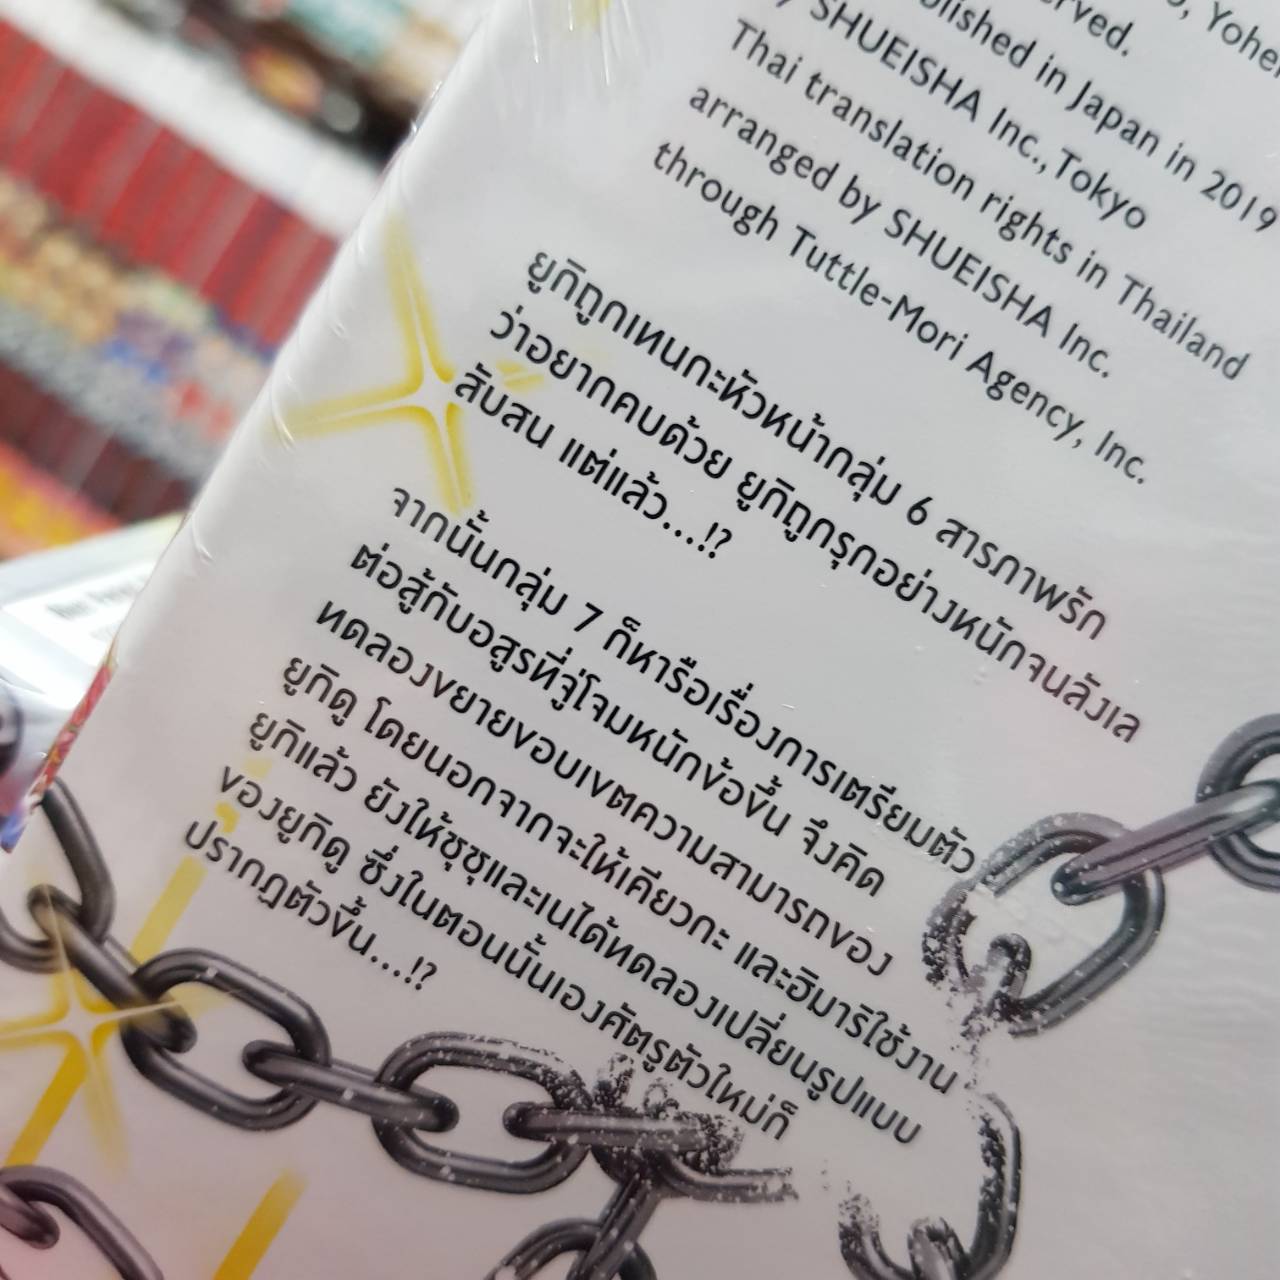 , Yohei
served.
published in Japan in 2019
by SHUEISHA Inc., Tokyo
Thai translation rights in Thailand
arranged by SHUEISHA Inc.
through Tuttle-Mori Agency, Inc.
ยูกิถูกเทนกะหัวหน้ากลุ่ม 6 สารภาพรัก
ว่าอยากคบด้วย ยูกิถูกรุกอย่างหนักจนลังเล
สับสน แต่แล้ว...!?
จากนั้นกลุ่ม 7 ก็หารือเรื่องการเตรียมตัว
ต่อสู้กับอสูรที่จู่โจมหนักข้อขึ้น จึงคิด
ทดลองขยายขอบเขตความสามารถของ
ยูกิดู โดยนอกจากจะให้เคียวกะ และฮิมาริใช้งาน
ยูกิแล้ว ยังให้ชุชุและเนได้ทดลองเปลี่ยนรูปแบบ
ของยูกิดู ซึ่งในตอนนั้นเองศัตรูตัวใหม่ก็
ปรากฏตัวขึ้น...!?